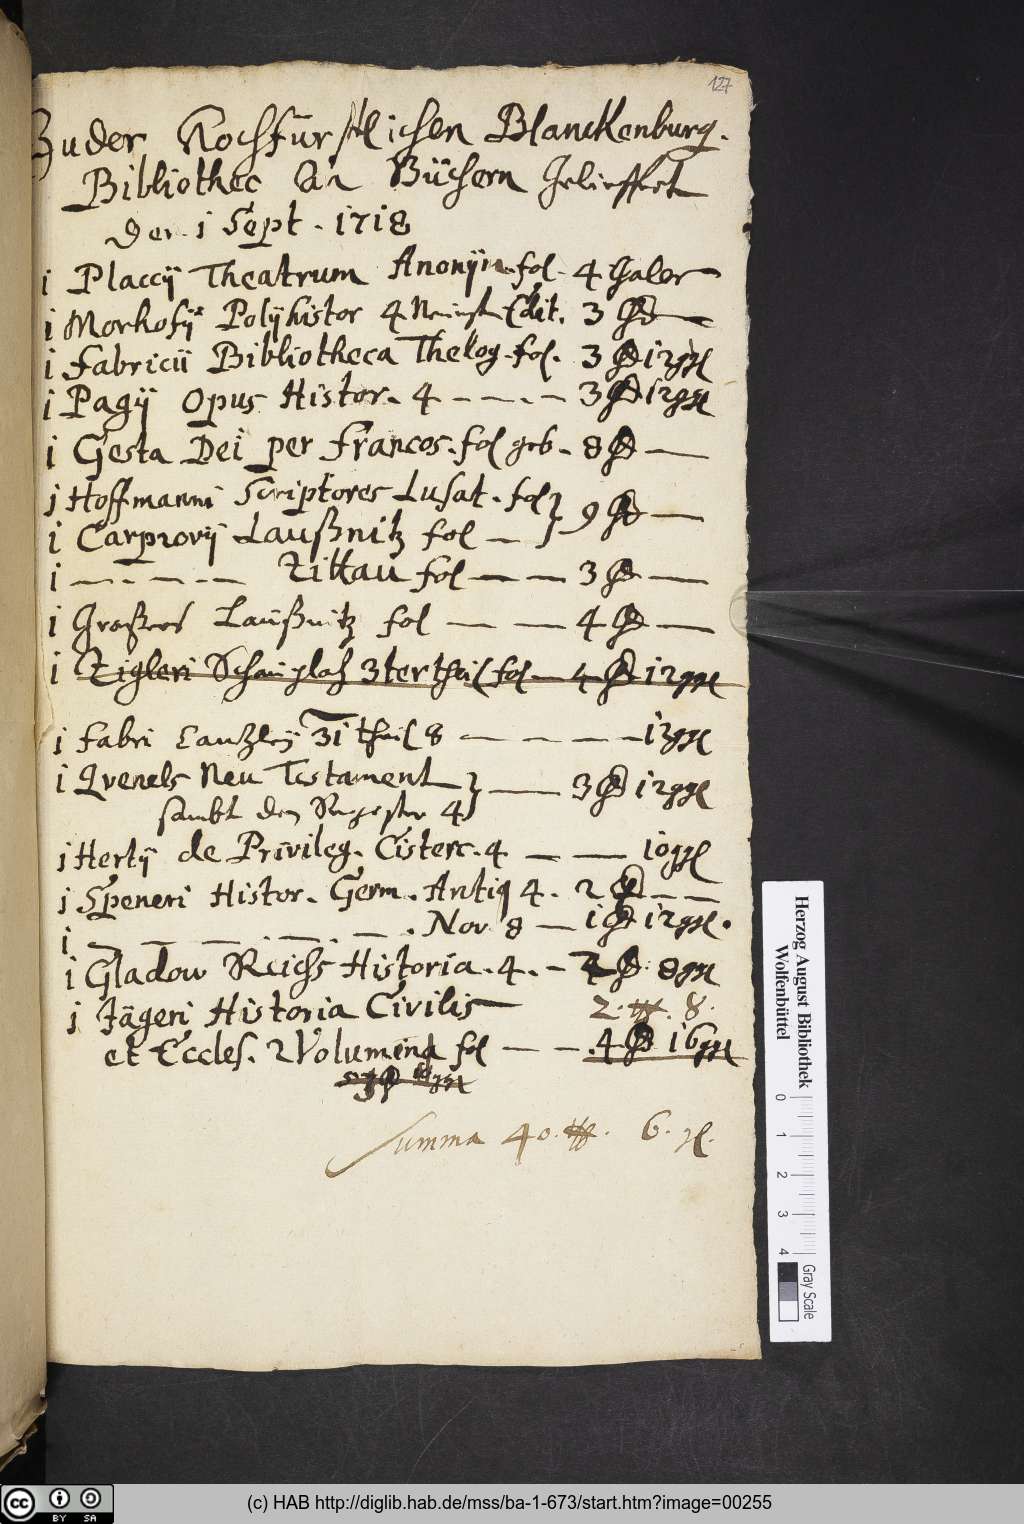 127
Zu der Hochfürstlichen Blanckenburg.
Bibliothec An Büchern Gelieffert
Den 1 Sept. 1718
1 Placcij Theatrum Anonym. fol. 4 thaler
1 Morhofij Polyhistor 4 Neuiste Edit. 3 thl
1 Fabricii Bibliotheca Theolog. fol. 3 thl 12 ggl
1 Pagij Opus Histor. 4 - - - - 3 thl 12 ggl
1 Gesta Dei per Francos. fol geb. 8 thl —
1 Hoffmanni Scriptores Lusat. fol } 9 thl —
1 Carpzovij Laußnitz fol —
1 — - — - — Zittau fol — — 3 thl —
1 Großers Laußnitz fol — — 4 thl —
1 Zigleri Schauplatz 3ter theil fol — 4 thl 12 ggl
1 Fabri Cantzley 31 theil 8 — — — — — 12 ggl
1 Qvenels Neu Testament } — 3 thl 12 ggl
sambt den Register 4
1 Hertij de Privileg. Cisterc. 4 — — 10 ggl
1 Speneri Histor. Germ. Antiq 4. 2 thl — —
1 — — — . — . — . Nov 8 — 1 thl 12 ggl.
1 Gladow Reichs Historia. 4. — thl 8 ggl
2. thl. 8.
1 Jägeri Historia Civilis
et Eccles. 2 Volumina fol — — . 4 thl 16 ggl
Summa 40. thl. 6. gl.
Herzog August Bibliothek
Wolfenbüttel
0 1 2 3 4
Gray Scale
cc BY SA
(c) HAB http://diglib.hab.de/mss/ba-1-673/start.htm?image=00255